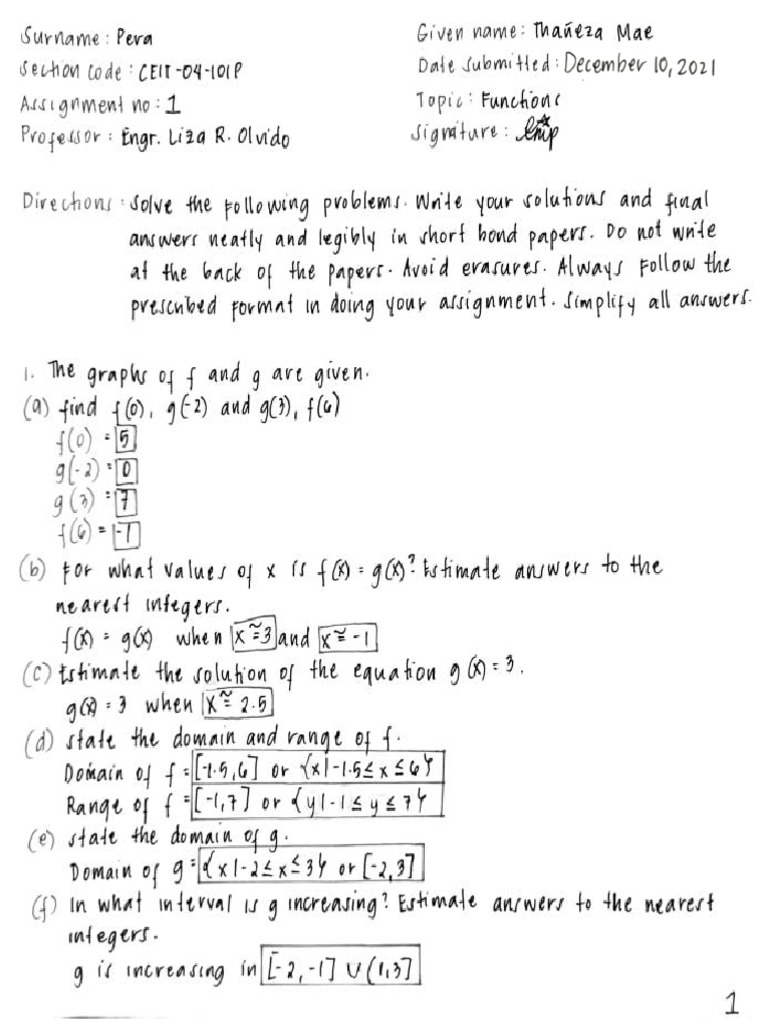 Surname: Pera
Given name: Thañeza Mae
Section Code: CEIT-04-101P
Date Submitted: December 10, 2021
Assignment no: 1
Topic: Functions
Professor: Engr. Liza R. Olvido
Signature:
Directions: Solve the following problems. Write your solutions and final
answers neatly and legibly in short bond papers. Do not write
at the back of the papers. Avoid erasures. Always Follow the
prescribed format in doing your assignment. Simplify all answers.
1. The graphs of f and g are given.
(a) find f(0), g(-2) and g(3), f(6)
f(0) = 5
g(-2) = 0
g(3) = 7
f(6) = -1
(b) For what values of x is f(x) = g(x)? Estimate answers to the
nearest integers.
f(x) = g(x) when x ≅ 3 and x ≅ -1
(c) Estimate the solution of the equation g(x) = 3.
g(x) = 3 when x ≅ 2.5
(d) State the domain and range of f.
Domain of f = [-1.5, 6] or {x|-1.5 ≤ x ≤ 6}
Range of f = [-1, 7] or {y|-1 ≤ y ≤ 7}
(e) State the domain of g.
Domain of g = {x|-2 ≤ x ≤ 3} or [-2, 3]
(f) In what interval is g increasing? Estimate answers to the nearest
integers.
g is increasing in [-2, -1] ∪ (1, 3]
1